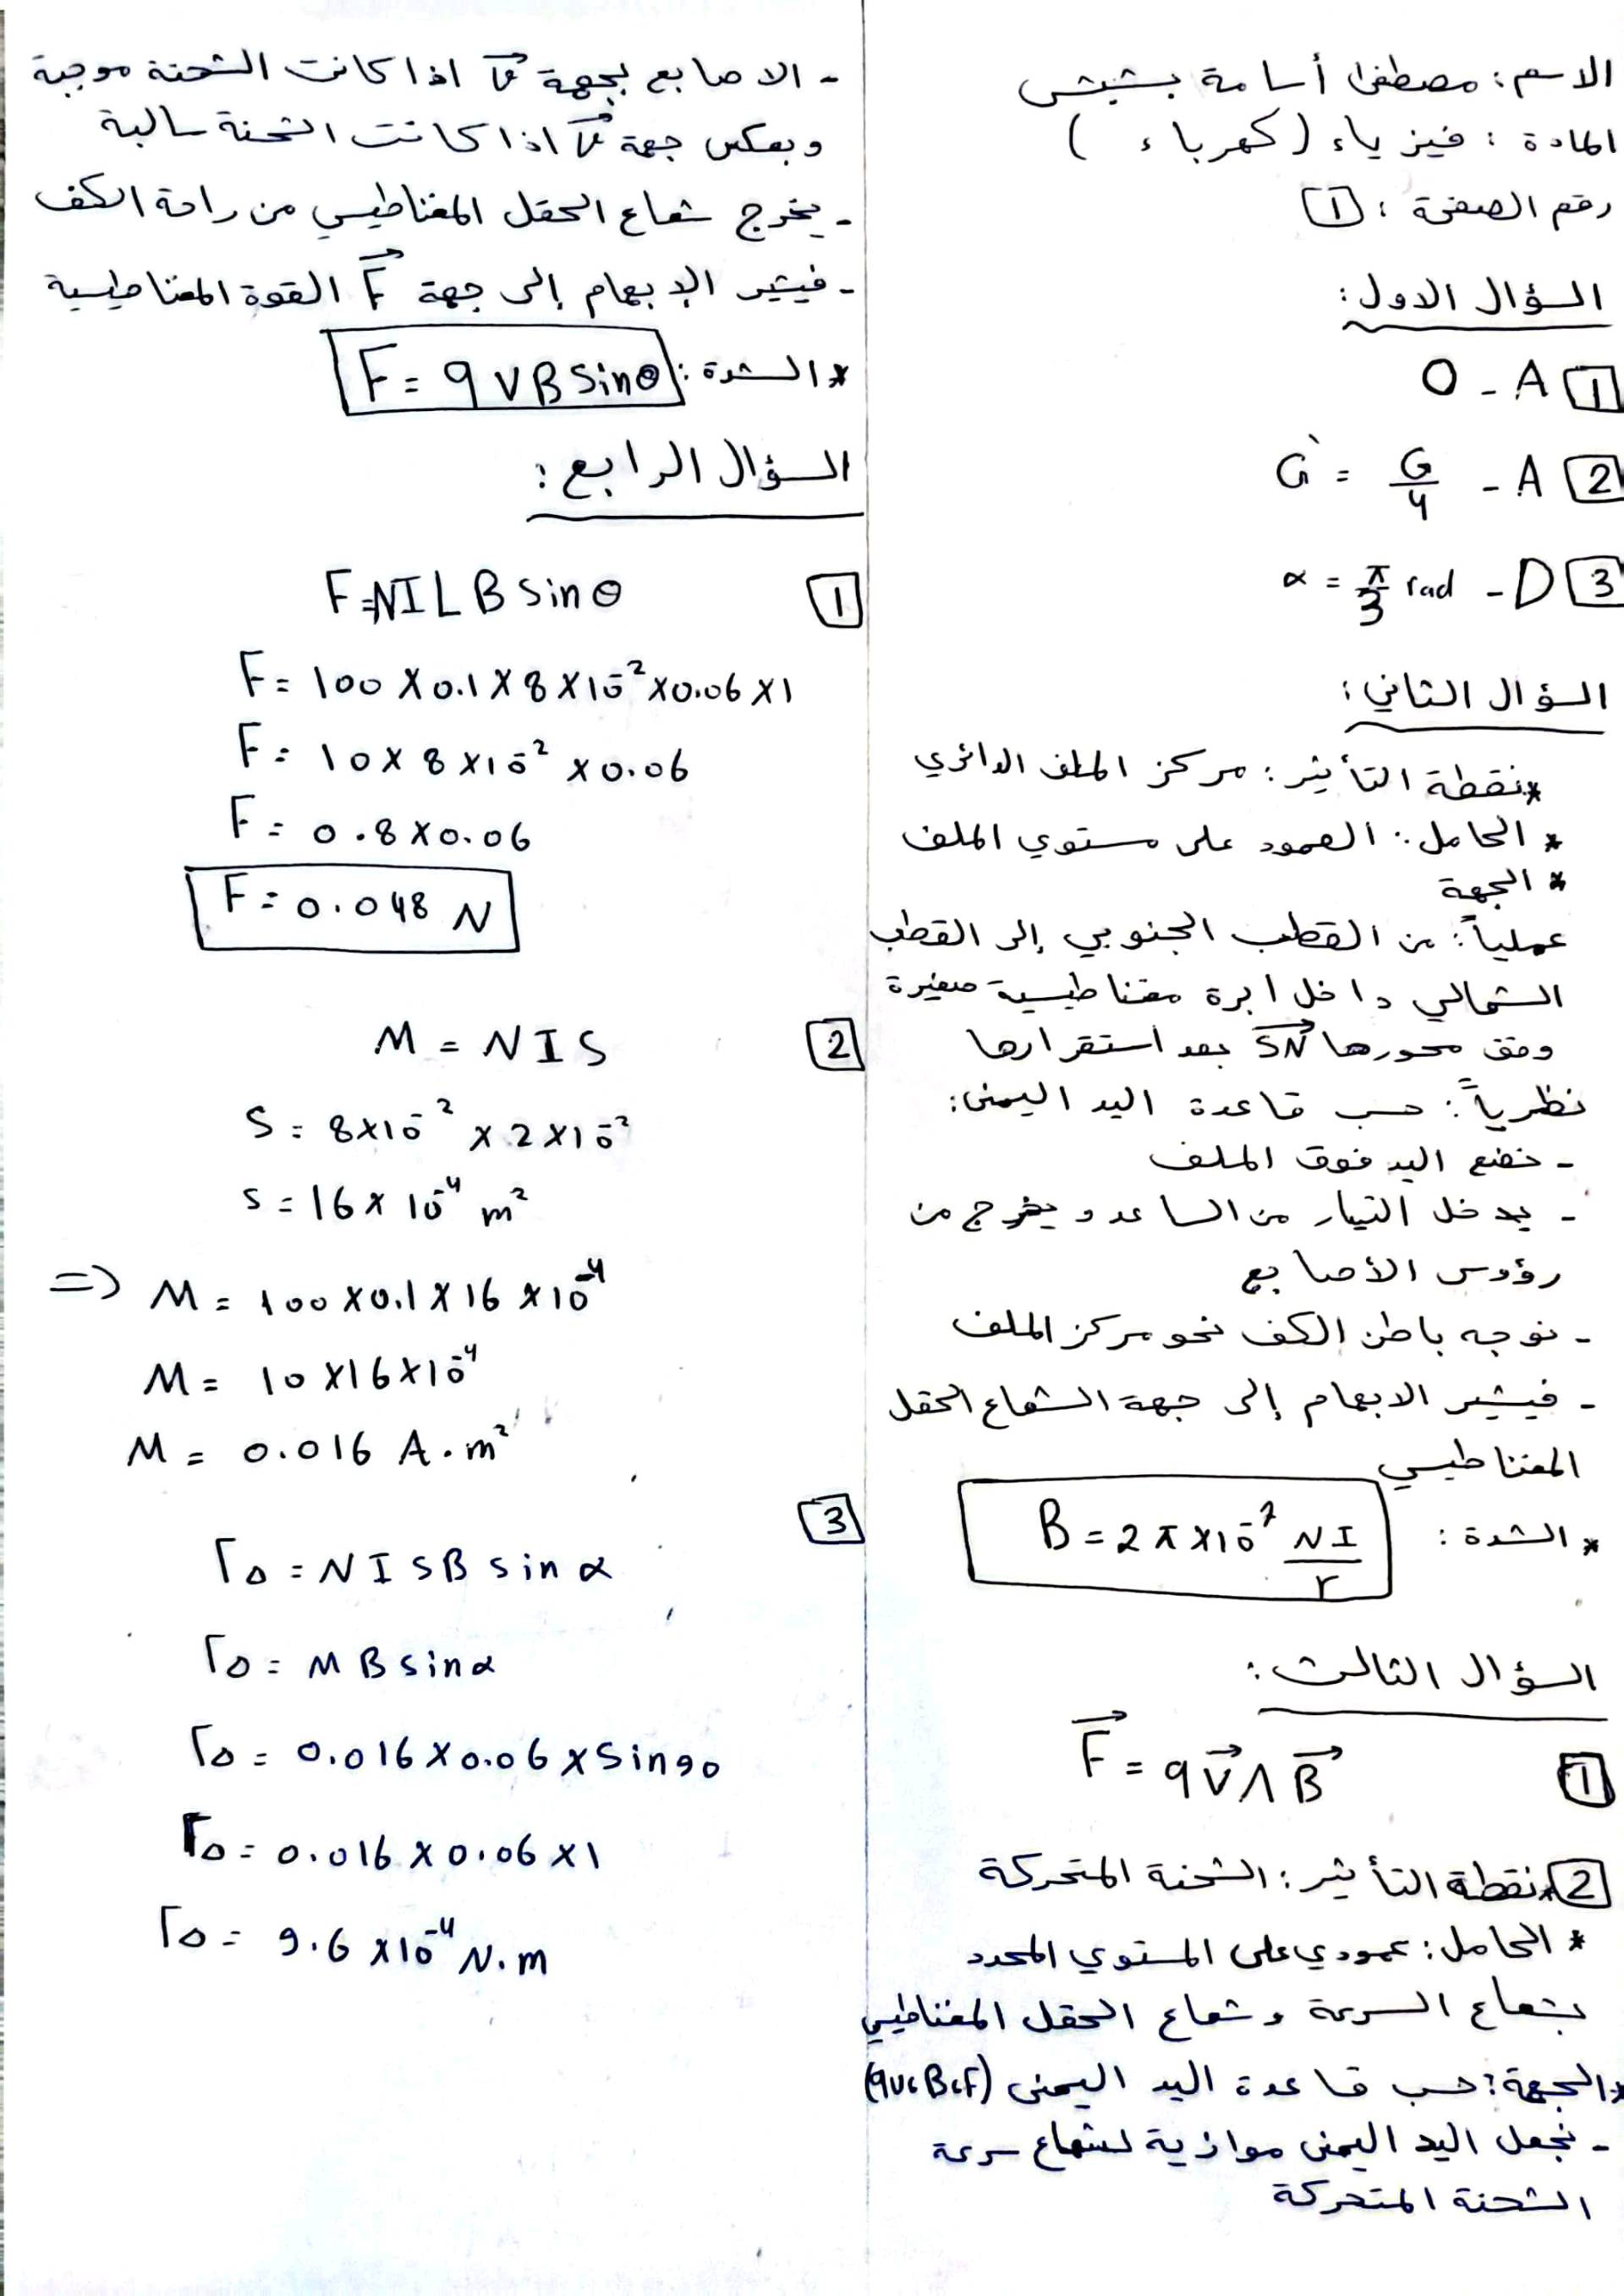 الاسم : مصطفى أسامة بشبش
المادة : فيزياء (كهرباء)
رقم الصفحة : 1
السؤال الاول :
1 A - O
2 A - G` = G/4
3 D - α = π/3 rad
السؤال الثاني :
* نقطة التأثير : مركز الملف الدائري
* الحامل : العمود على مستوي الملف
* الجهة
عملياً : من القطب الجنوبي إلى القطب
الشمالي داخل ابرة مغناطيسية صغيرة
وفق محورها SN بعد استقرارها
نظرياً : حسب قاعدة اليد اليمنى :
- نضع اليد فوق الملف
- يدخل التيار من الساعد و يخرج من
رؤوس الأصابع
- نوجه باطن الكف نحو مركز الملف
- فيشير الابهام إلى جهة الشعاع الحقل
المغناطيسي
* الشدة : B = 2π×10⁻⁷ NI/r
السؤال الثالث :
1 F⃗ = qv⃗ ∧ B⃗
2 * نقطة التأثير : الشحنة المتحركة
* الحامل : عمودي على المستوي المحدد
بشعاع السرعة و شعاع الحقل المغناطيسي
* الجهة : حسب قاعدة اليد اليمنى (qv، B، F)
- نجعل اليد اليمنى موازية لشعاع سرعة
الشحنة المتحركة
- الاصابع بجهة v⃗ اذا كانت الشحنة موجبة
وبعكس جهة v⃗ اذا كانت الشحنة سالبة
- يخرج شعاع الحقل المغناطيسي من راحة الكف
- فيشير الإبهام إلى جهة F⃗ القوة المغناطيسية
* الشدة : F = qVB sinθ
السؤال الرابع :
1 F = NILB sinθ
F = 100 × 0.1 × 8 × 10⁻² × 0.06 × 1
F = 10 × 8 × 10⁻² × 0.06
F = 0.8 × 0.06
F = 0.048 N
2 M = NIS
S = 8×10⁻² × 2×10⁻²
S = 16 × 10⁻⁴ m²
=> M = 100 × 0.1 × 16 × 10⁻⁴
M = 10 × 16 × 10⁻⁴
M = 0.016 A.m²
3 ΓΔ = NISB sin α
ΓΔ = MB sin α
ΓΔ = 0.016 × 0.06 × sin 90
ΓΔ = 0.016 × 0.06 × 1
ΓΔ = 9.6 × 10⁻⁴ N.m